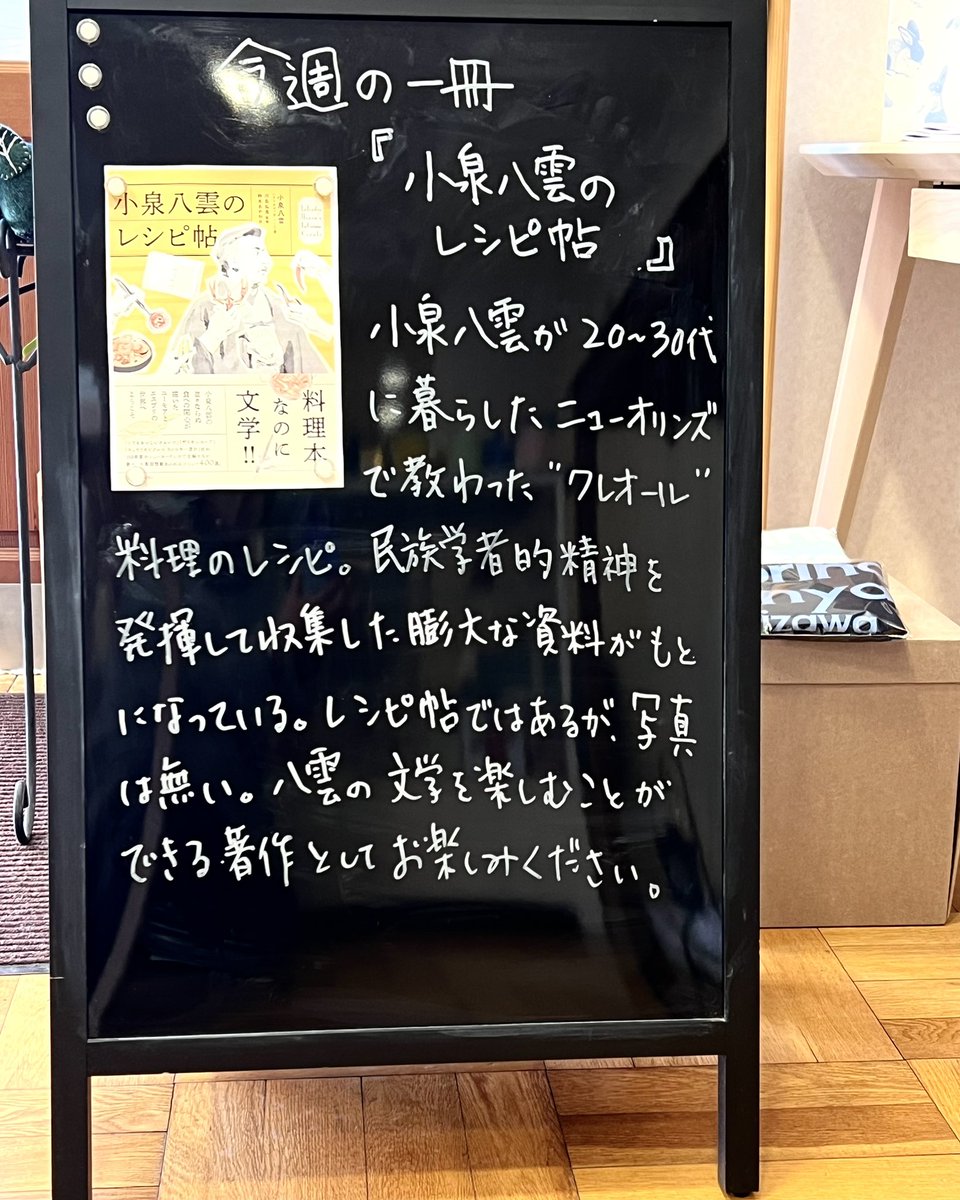 今週の一冊
『小泉八雲の
レシピ帖』
小泉八雲が20〜30代
に暮らしたニューオリンズ
で教わった"クレオール"
料理のレシピ。民族学者的精神を
発揮して収集した膨大な資料がもと
になっている。レシピ帖ではあるが、写真
は無い。八雲の文学を楽しむことが
できる著作としてお楽しみください。
小泉八雲の
レシピ帖
小泉八雲
料理本
なのに
文学!!
izawa